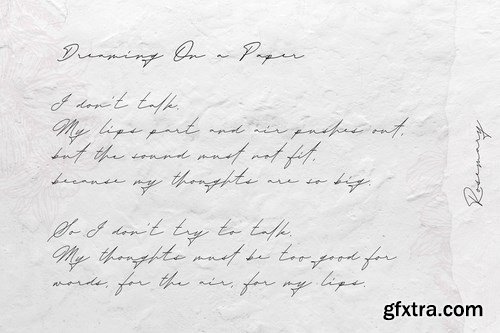 Dreaming On a Paper
I don't talk.
My lips part and air pushes out,
but the sound must not fit,
because my thoughts are so big.
So I don't try to talk.
My thoughts must be too good for
words, for the air, for my lips.
Rosemary
gfxtra.com